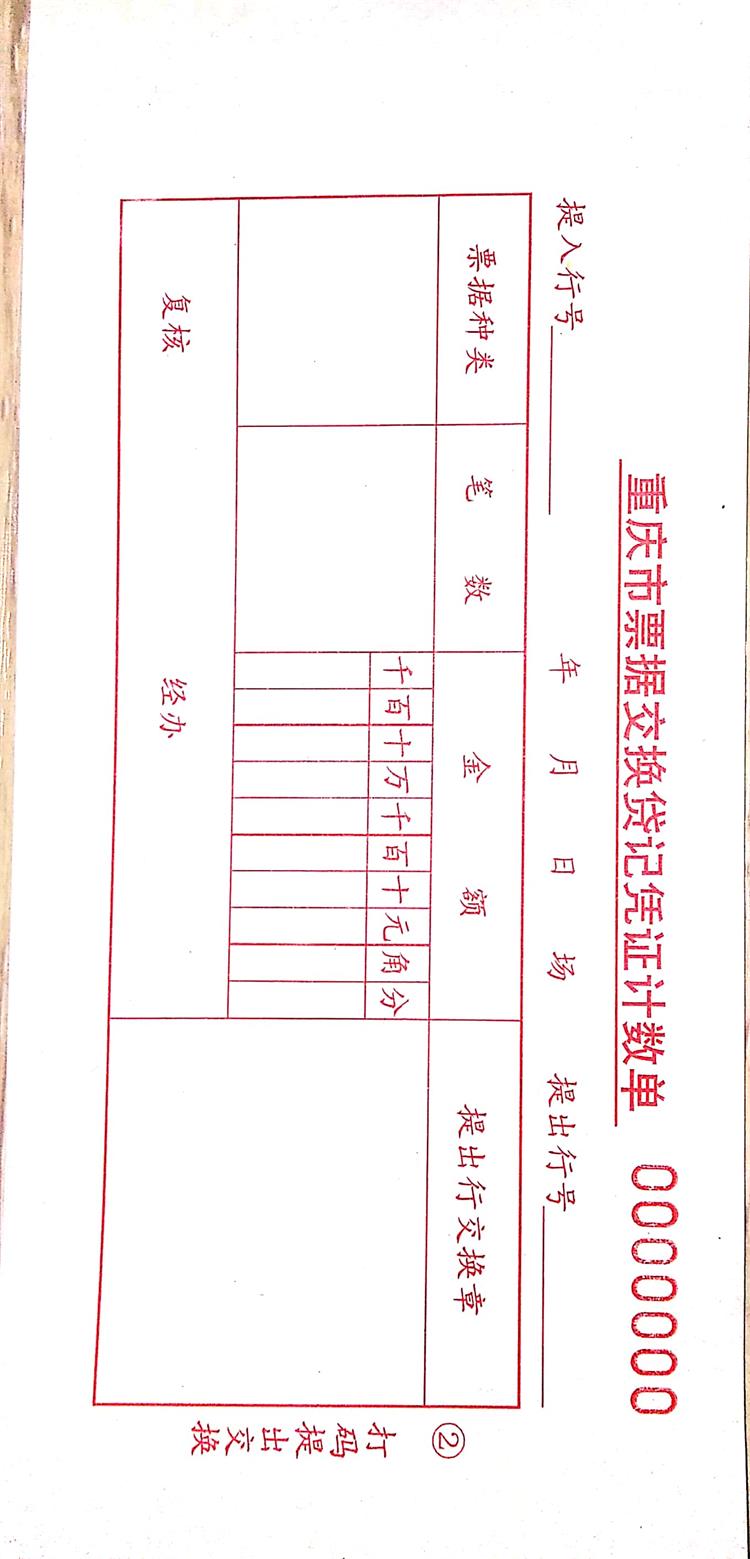 重庆市票据交换贷记凭证计数单 0000000
提入行号 年 月 日 场 提出行号
票据种类 笔 数 金 额 提出行交换章
千 百 十 万 千 百 十 元 角 分
复核 经办
②
打码提出交换